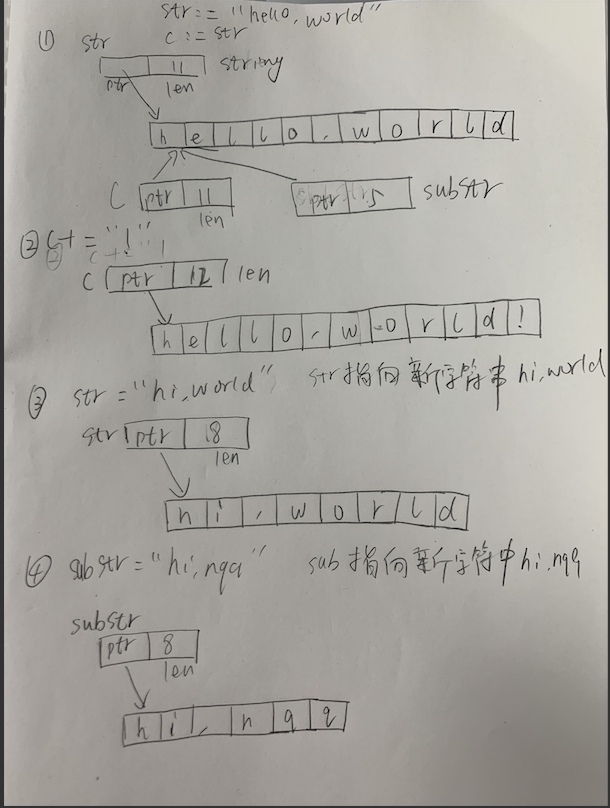 str:= "hello, world"
① str c := str
11 string
ptr len
h e l l o , w o r l d
C ptr 11 ptr 5 substr
len
② C+ = "!"
C ptr 12 len
h e l l o , w o r l d !
③ str = "hi,world" str指向新字符串hi,world
str ptr 8
len
h i , w o r l d
④ substr = "hi,nqq" sub指向新字符串hi,nqq
substr
ptr 8
len
h i , n q q